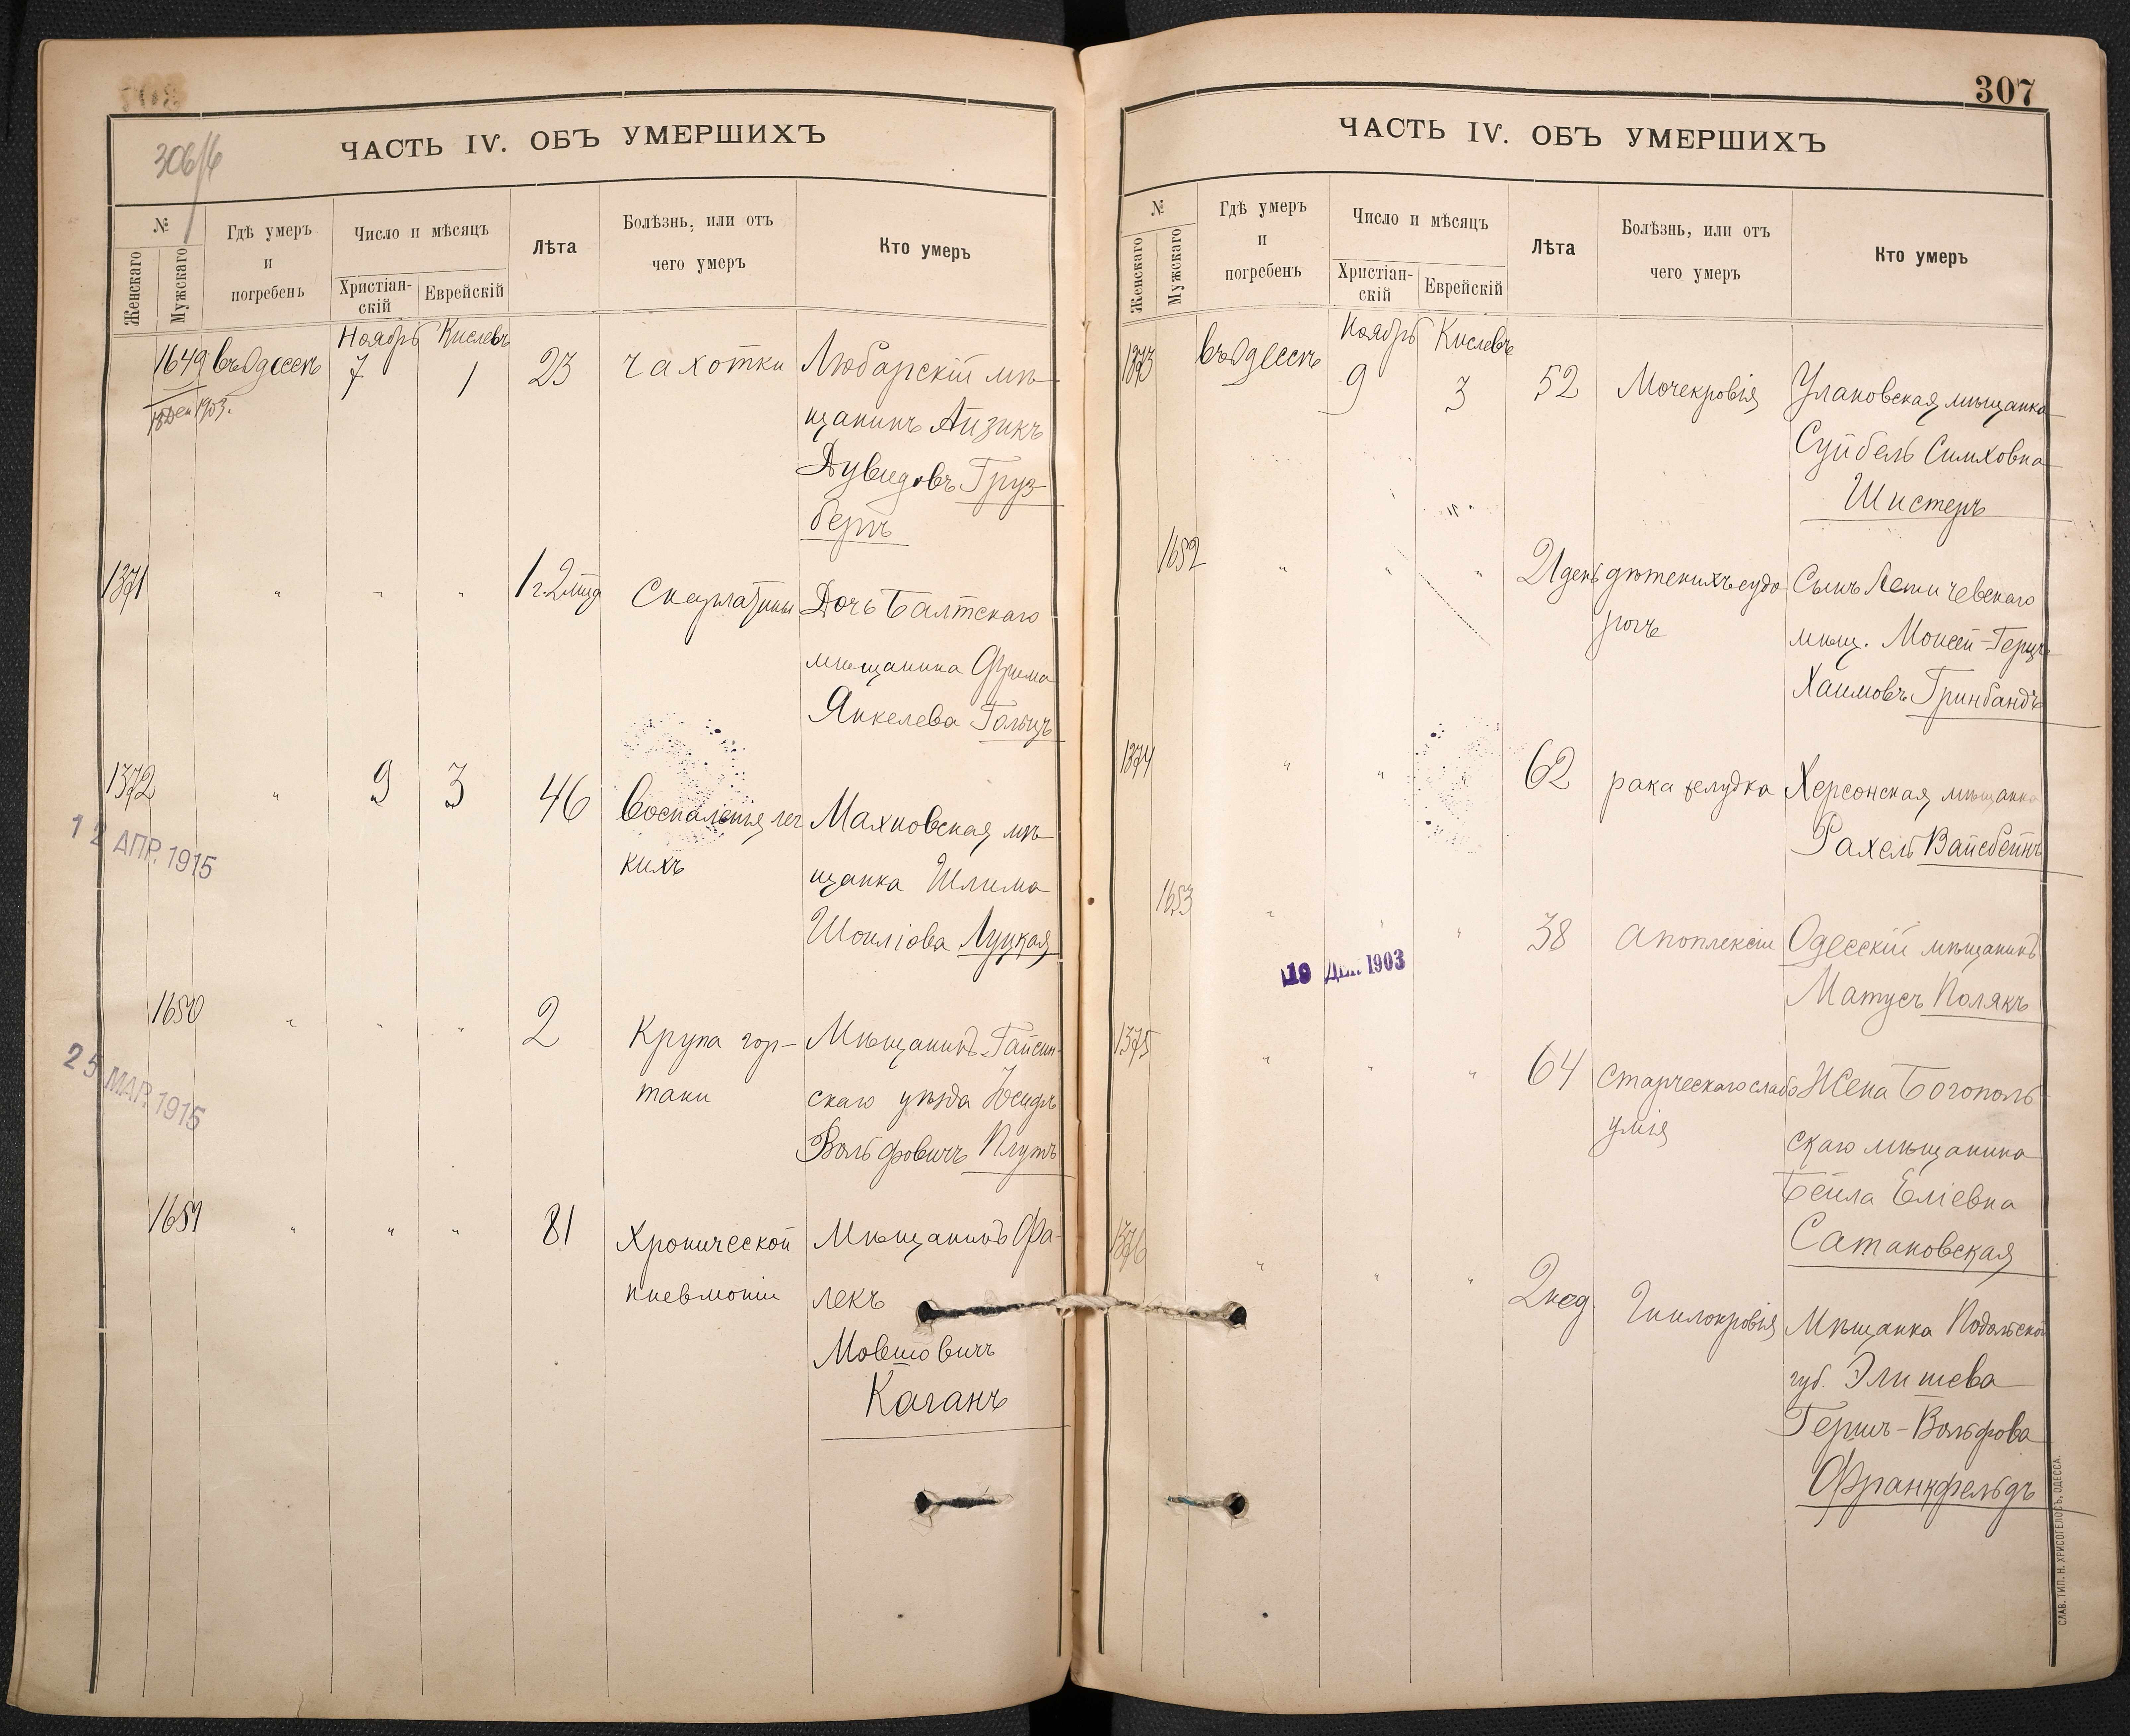 306/6
ЧАСТЬ IV. ОБЪ УМЕРШИХЪ
№
Женскаго
Мужскаго
Гдѣ умеръ
и
погребенъ
Число и мѣсяцъ
Христіан-
скій
Еврейскій
Лѣта
Болѣзнь, или отъ
чего умеръ
Кто умеръ
Ноябрь Кислевъ
1649 въ Одессѣ 7 1 23 чахотки Любарскій мѣ-
щанинъ Айзикъ
Дувидовъ Груз-
бергъ
1903.
1371 " " " 1 г. 2 мѣс Скарлатины Дочь Балтскаго
мѣщанина Фрима
Янкелева Гольцъ
1372 " 9 3 46 Воспаленія лег
кихъ
Махновская мѣ-
щанка Шлима
Шоиліова Луцкая
12 АПР. 1915
1650 " " " 2 Крупа гор-
тани
Мѣщанинъ Гайсин-
скаго уѣзда Іосифъ
Вольфовичъ Плутъ
25 МАР. 1915
1651 " " " 81 Хронической
пневмоніи
Мѣщанинъ Фа-
лекъ
Мовшовичъ
Каганъ
307
ЧАСТЬ IV. ОБЪ УМЕРШИХЪ
№
Женскаго
Мужскаго
Гдѣ умеръ
и
погребенъ
Число и мѣсяцъ
Христіан-
скій
Еврейскій
Лѣта
Болѣзнь, или отъ
чего умеръ
Кто умеръ
Ноябрь Кислевъ
1373 въ Одессѣ 9 3 52 Мочекровія Улановская мѣщанка
Суйбель Симховна
Шистеръ
1652 " " " 21 день дѣтскихъ судо
рогъ
Сынъ Летичевскаго
мѣщ. Моисей-Герцъ
Хаимовъ Гринбандъ
1374 " " 62 рака желудка Херсонская мѣщанка
Рахель Вайсбейнъ
1653 " " " 38 апоплексіи Одесскій мѣщанинъ
Матусъ Полякъ
19 ДЕК. 1903
1375 " " " 64 старческаго слабо
умія
Жена Богополь-
скаго мѣщанина
Бейла Еліевна
Сатановская
1376 " " " 2 нед. Гнилокровія Мѣщанка Подольской
губ. Элишева
Гершъ-Вольфова
Франкфельдъ
СЛАВ. ТИП. Н. ХРИСОГЕЛОСЪ, ОДЕССА.